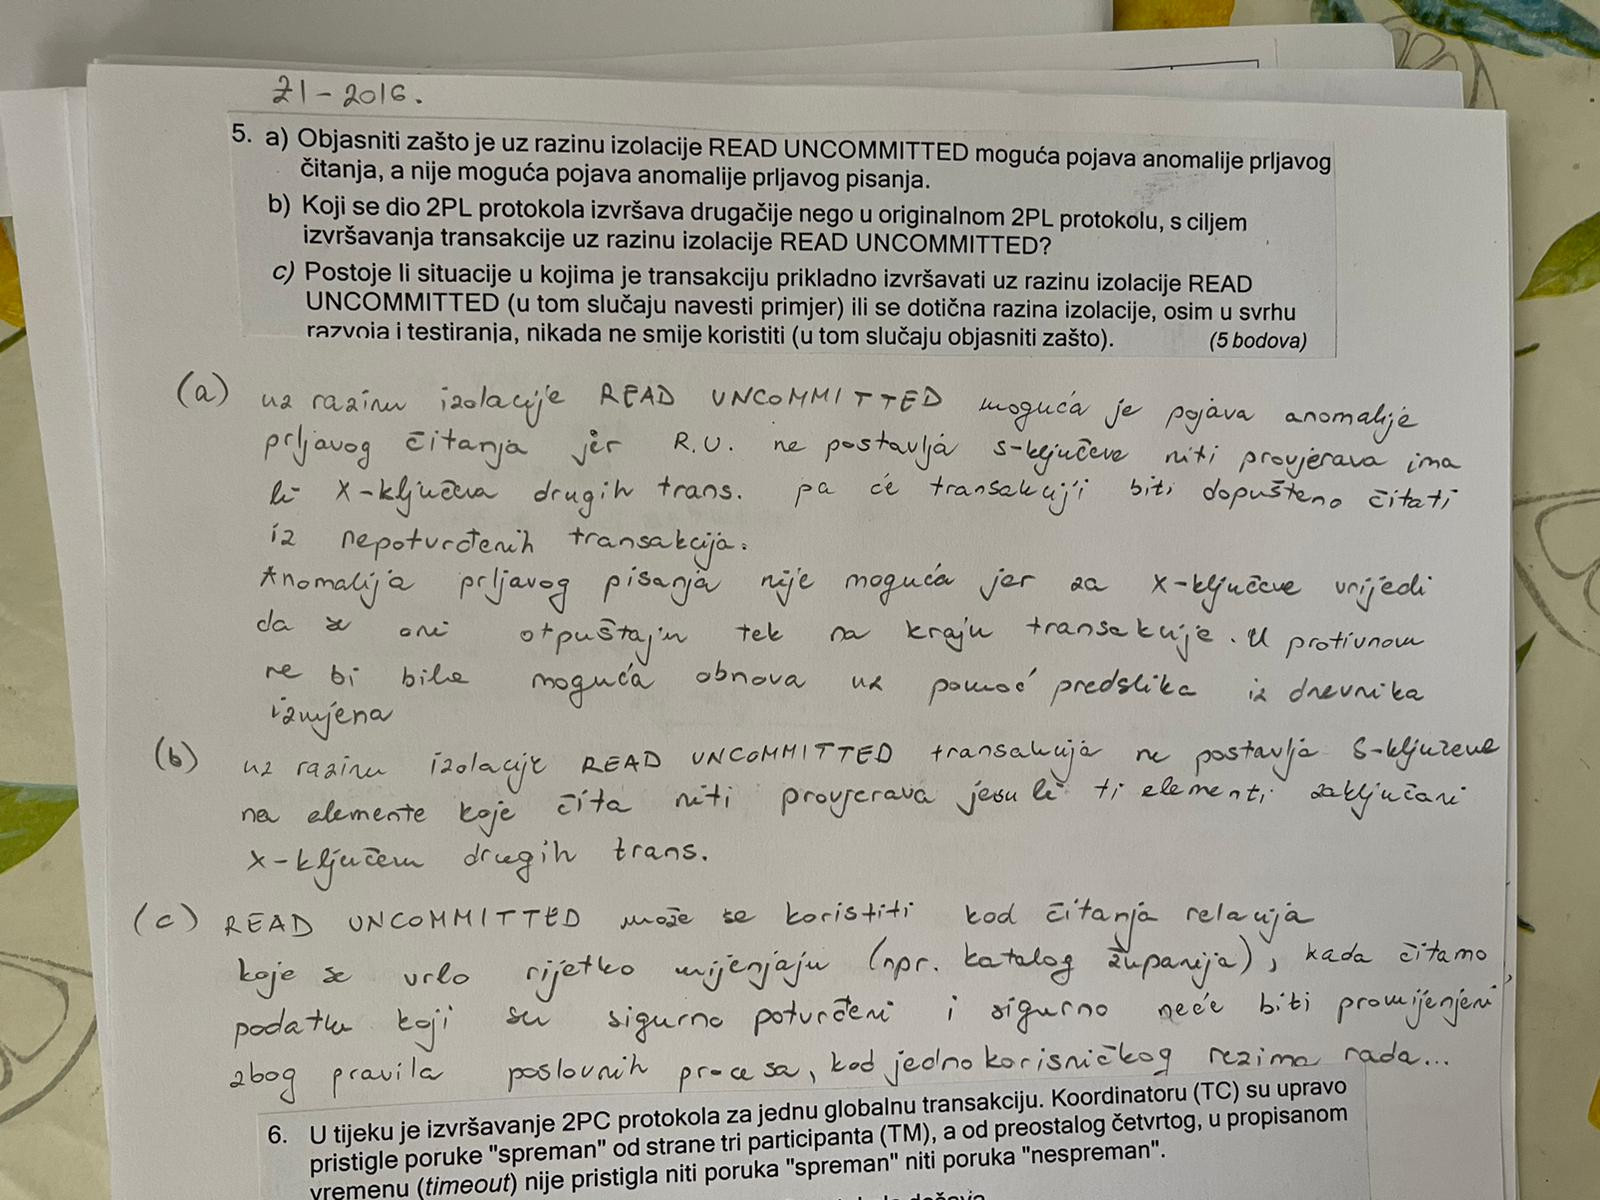 ZI - 2016.
5. a) Objasniti zašto je uz razinu izolacije READ UNCOMMITTED moguća pojava anomalije prljavog
čitanja, a nije moguća pojava anomalije prljavog pisanja.
b) Koji se dio 2PL protokola izvršava drugačije nego u originalnom 2PL protokolu, s ciljem
izvršavanja transakcije uz razinu izolacije READ UNCOMMITTED?
c) Postoje li situacije u kojima je transakciju prikladno izvršavati uz razinu izolacije READ
UNCOMMITTED (u tom slučaju navesti primjer) ili se dotična razina izolacije, osim u svrhu
razvoja i testiranja, nikada ne smije koristiti (u tom slučaju objasniti zašto). (5 bodova)
(a) uz razinu izolacije READ UNCOMMITTED moguća je pojava anomalije
prljavog čitanja jer R.U. ne postavlja S-ključeve niti provjerava ima
li X-ključeva drugih trans. pa će transakciji biti dopušteno čitati
iz nepotvrđenih transakcija.
Anomalija prljavog pisanja nije moguća jer za X-ključeve vrijedi
da se oni otpuštaju tek na kraju transakcije. U protivnom
ne bi bila moguća obnova uz pomoć predslika iz dnevnika
izmjena
(b) uz razinu izolacije READ UNCOMMITTED transakcija ne postavlja S-ključeve
na elemente koje čita niti provjerava jesu li ti elementi zaključani
X-ključem drugih trans.
(c) READ UNCOMMITTED može se koristiti kod čitanja relacija
koje se vrlo rijetko mijenjaju (npr. katalog županija), kada čitamo
podatke koji su sigurno potvrđeni i sigurno neće biti promijenjeni
zbog pravila poslovnih procesa, kod jednokorisničkog režima rada...
6. U tijeku je izvršavanje 2PC protokola za jednu globalnu transakciju. Koordinatoru (TC) su upravo
pristigle poruke "spreman" od strane tri participanta (TM), a od preostalog četvrtog, u propisanom
vremenu (timeout) nije pristigla niti poruka "spreman" niti poruka "nespreman".